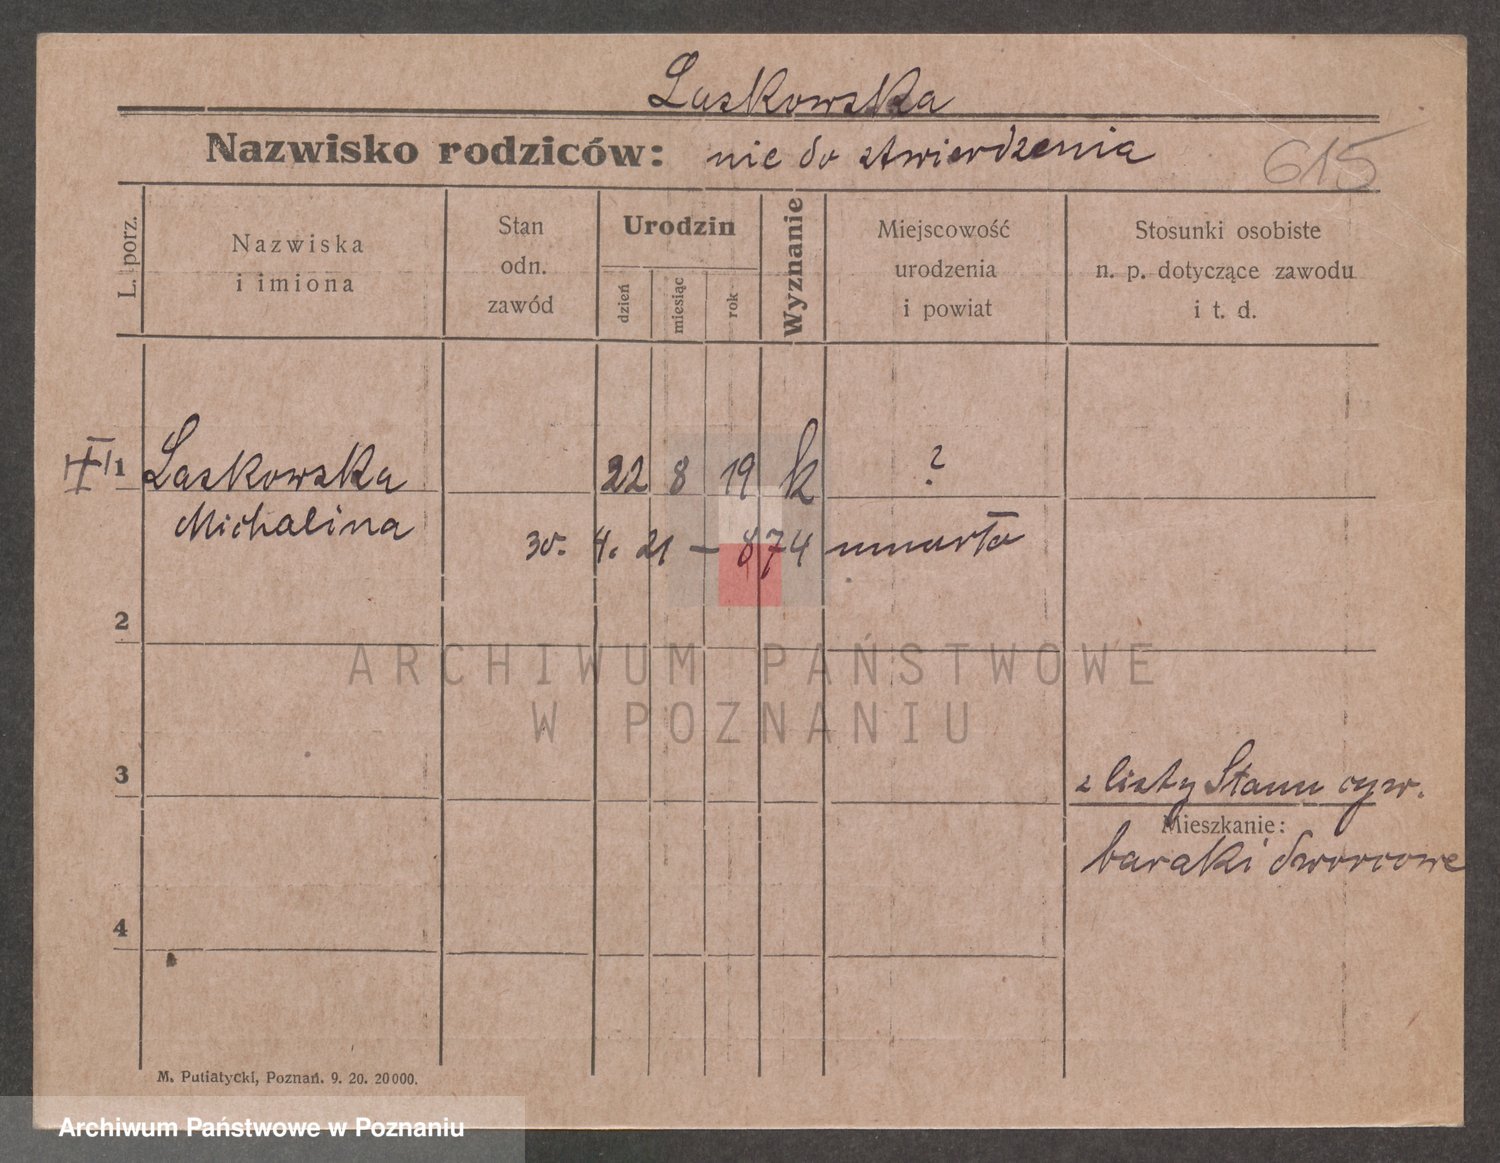 Laskowska
Nazwisko rodziców: nie do stwierdzenia
615
L. porz.
Nazwiska
i imiona
Stan
odn.
zawód
Urodzin
dzień
miesiąc
rok
Wyznanie
Miejscowość
urodzenia
i powiat
Stosunki osobiste
n. p. dotyczące zawodu
i t. d.
1 Laskowska 22 8 19 k ?
Michalina
30. 4. 21 – 874 umarła
2
ARCHIWUM PAŃSTWOWE
W POZNANIU
3
z listy Stanu cyw.
Mieszkanie:
baraki dworcowe
4
M. Putiatycki, Poznań. 9. 20. 20000.
Archiwum Państwowe w Poznaniu